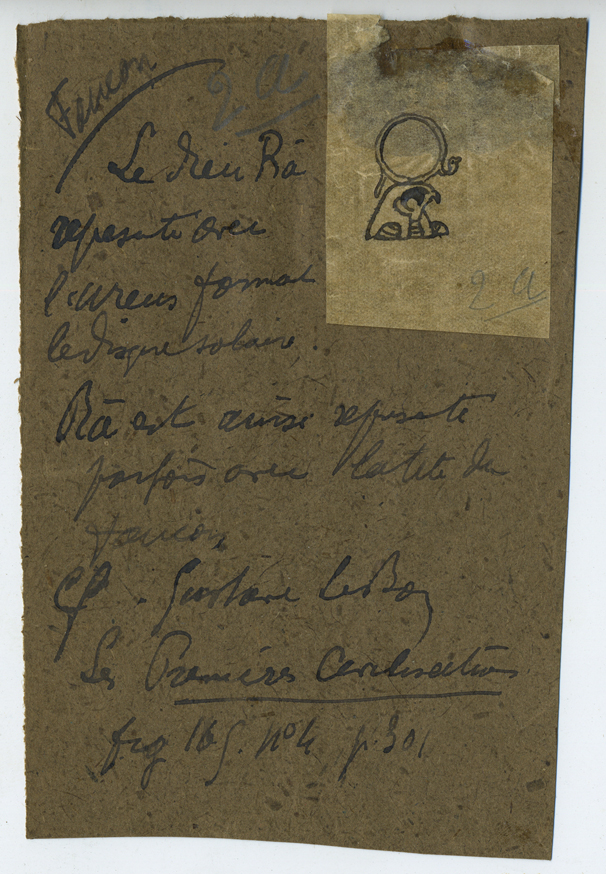 Faucon
2 a
Le dieu Râ
represente avec
l'ureus formant
le disque solaire.
2 a
Râ est ainsi represente
parfois avec la tete du
faucon
Cf. Gustave Le Bon
Les Premières Civilisations
fig 165. no 4 p. 301